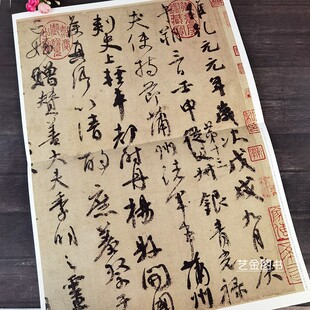 維乾元元年歲次戊戌九月庚
午朔三日壬申第十三叔銀青光祿
夫使持節蒲州諸軍事蒲州
刺史上輕車都尉丹楊縣開國
侯真卿以清酌庶羞祭于
亡姪贈贊善大夫季明之靈
艺金图书